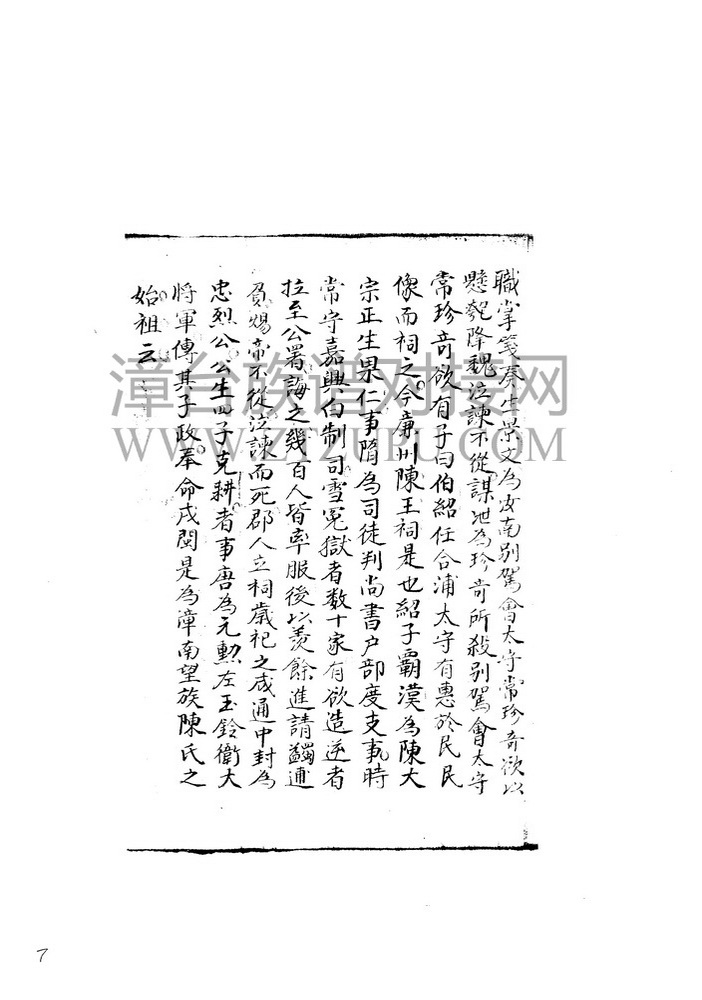 職掌箋奏生景文為汝南別駕會太守常珍奇欲以
懸瓠降魏泣諫不從謀泄為珍奇所殺別駕會太守
常珍奇欲有子曰伯紹任合浦太守有惠於民民
像而祠之今廉州陳王祠是也紹子霸漢為陳大
宗正生果仁事隋為司徒判尚書户部度支事時
常守嘉興白制司雪冤獄者数十家有欲造逆者
拉至公署誨之幾百人皆率服後以羨餘進請蠲逋
負賜帝不從泣諫而死郡人立祠歲祀之咸通中封為
忠烈公公生四子克耕者事唐為元勲左玉鈴衛大
將軍傳其子政奉命戍閩是為漳南望族陳氏之
始祖云
漳台族谱对接网
WWW.ZTZUPU.COM
7